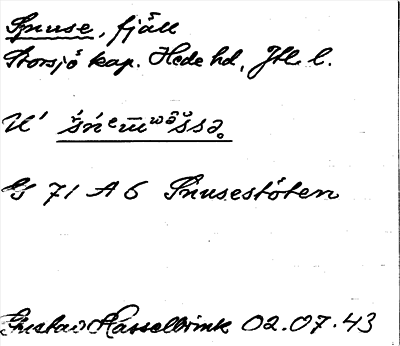 Snuse, fjäll
Storsjö kap. Hede hd, Jtl. l.
U'
GS 71 A 6 Snusestöten
Gustav Hasselbrink 02.07.43